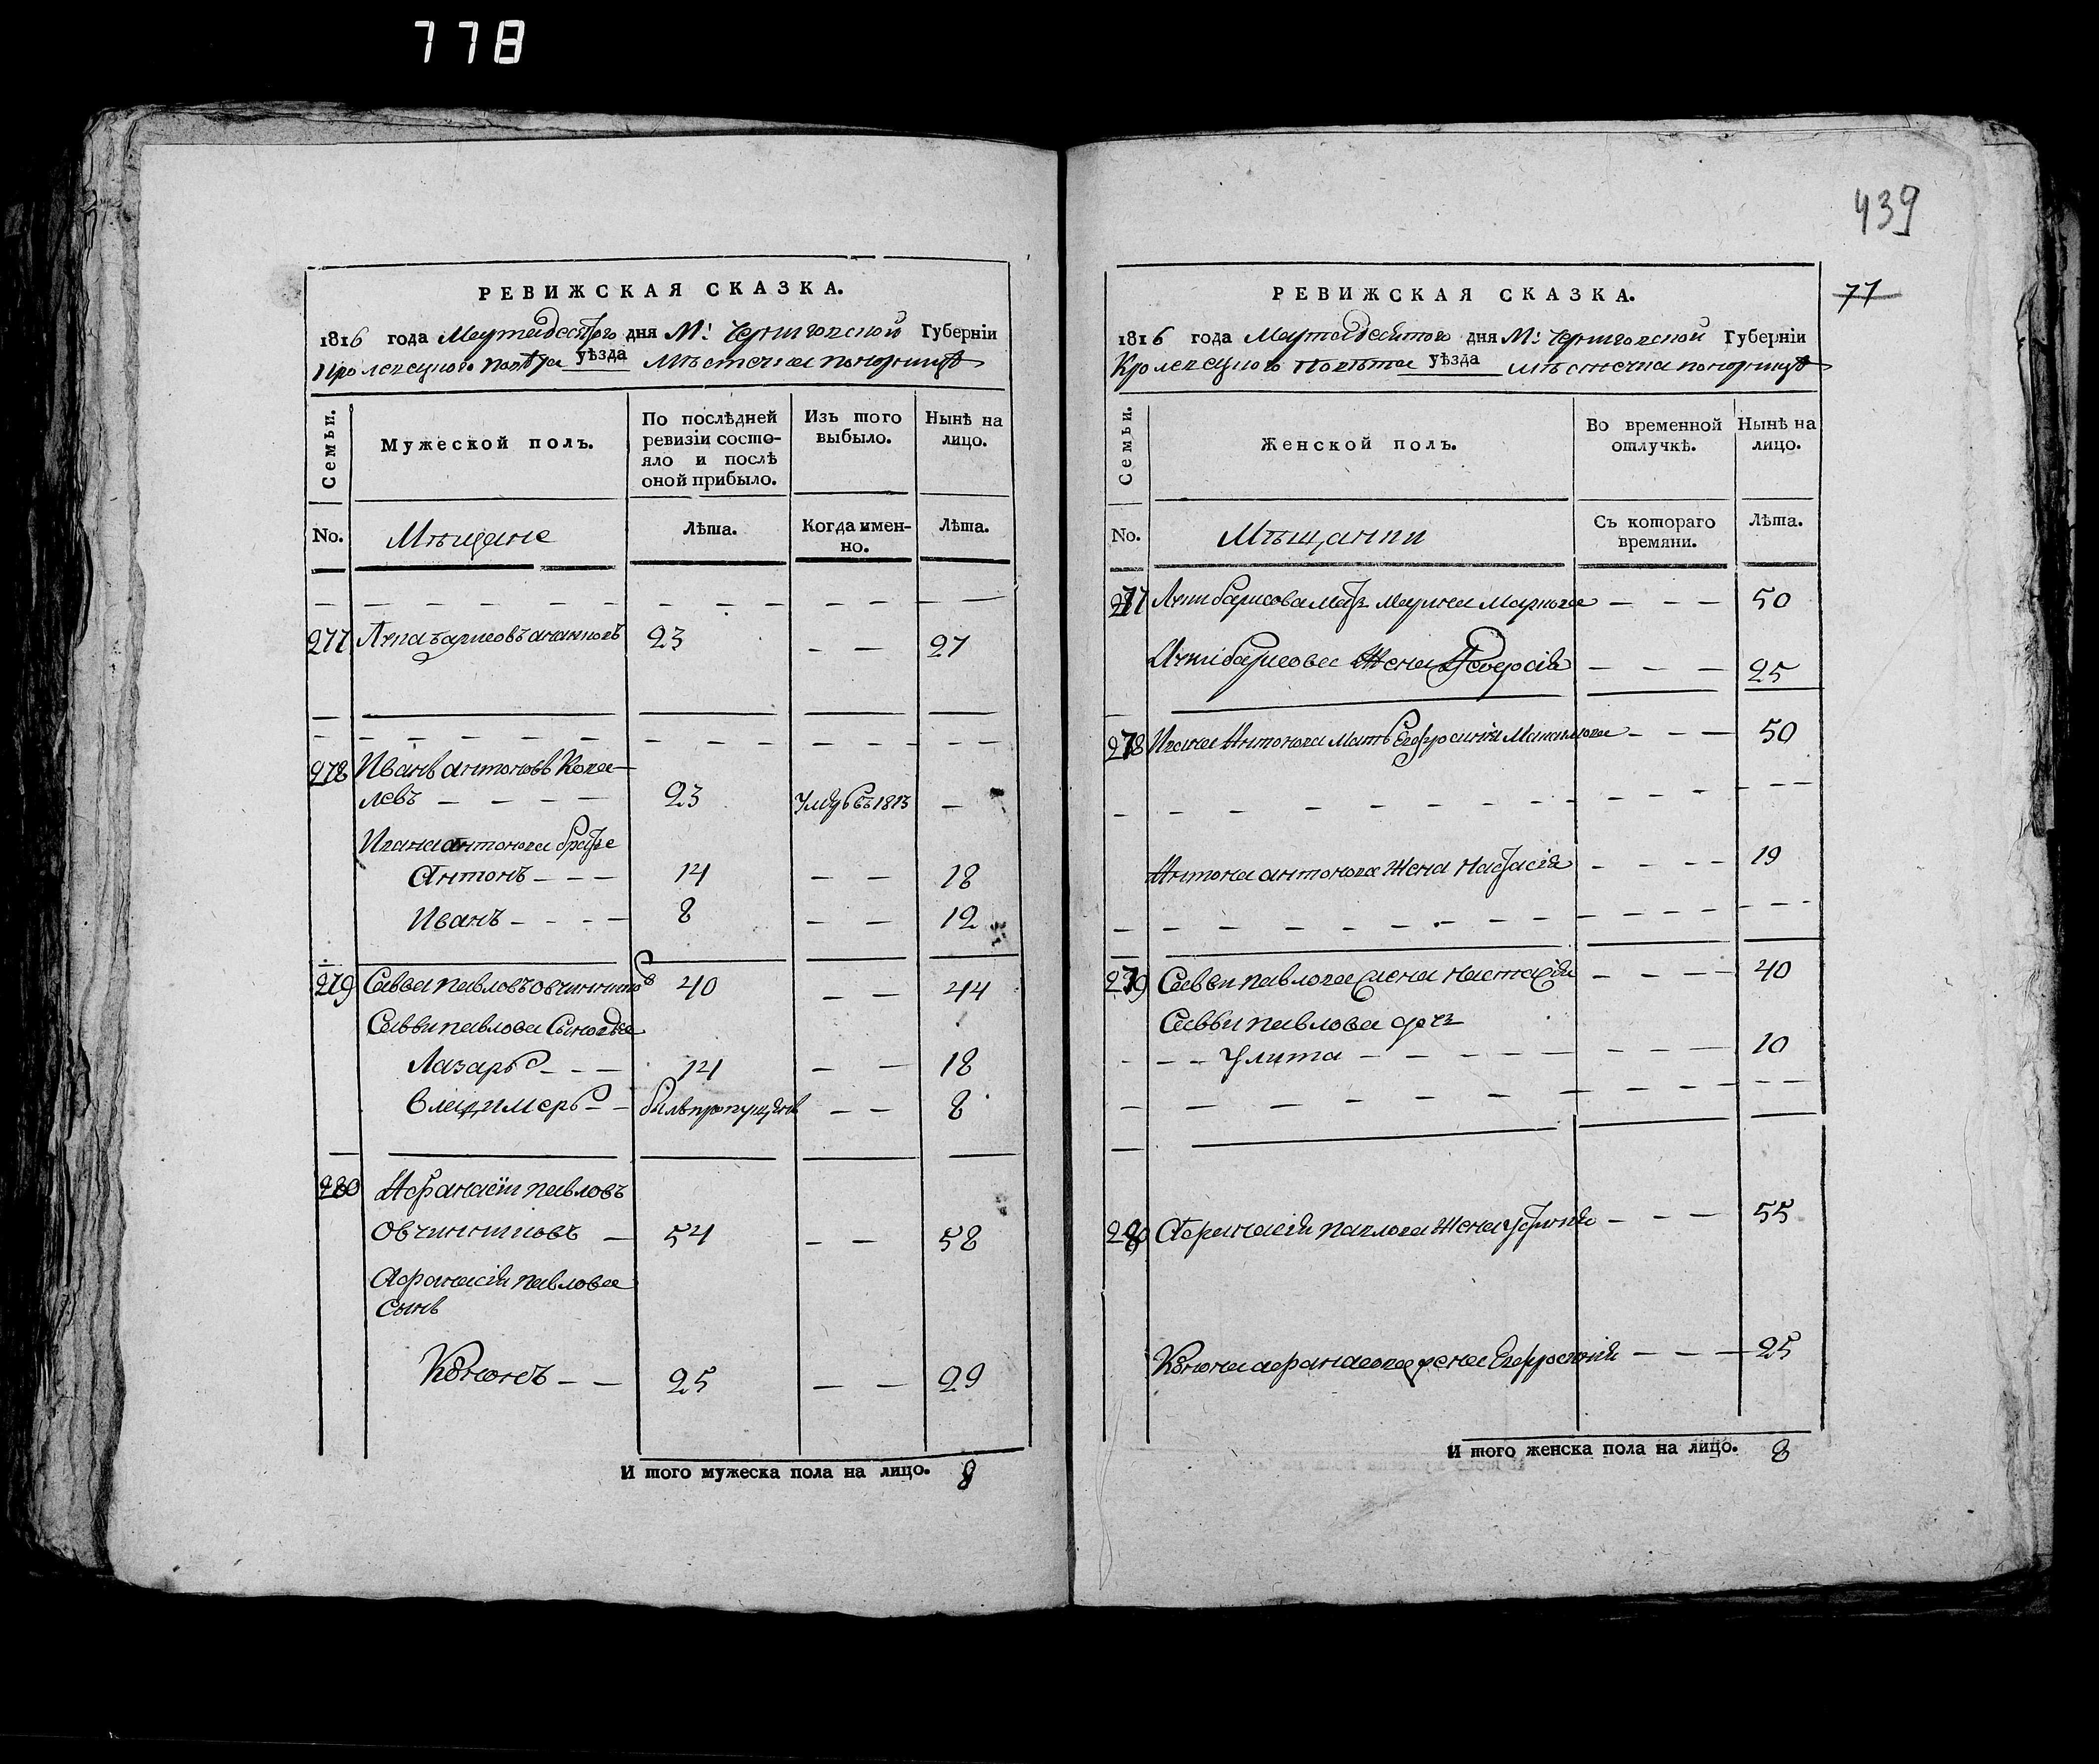 778
РЕВИЖСКАЯ СКАЗКА.
1816 года Маутадесятого дня М: Черниговской Губерніи
Кролевецкого Повѣта уѣзда Мѣстечка Понорницѣ
Семьи.
Мужеской полъ.
По послѣдней ревизіи состояло и послѣ оной прибыло.
Изъ того выбыло.
Нынѣ на лицо.
No.
Мѣщане
Лѣта.
Когда имен-
но.
Лѣта.
277 23 — — 27
278 Иванъ антоновъ Кова-
левъ — — — — 23 1813 —
Ивана антонова братье
Антонъ — — — 14 — — 18
Иванъ — — — — 8 — — 12
279 Савва павловъ овчинниковъ 40 — — 44
Саввы павлова Сыновья
Лазарь — — — 14 — — 18
владимеръ — — былъ пропущенъ — — 8
280 Афанасій павловъ
Овчинниковъ — 54 — — 58
Афанасія павлова
сынъ
Кононъ — — 25 — — 29
И того мужеска пола на лицо. 8
439
77
РЕВИЖСКАЯ СКАЗКА.
1816 года Маутадесятого дня М: Черниговской Губерніи
Кролевецкого Повѣта уѣзда мѣстечка понорницѣ
Семьи.
Женской полъ.
Во временной
отлучкѣ.
Нынѣ на
лицо.
No.
Мѣщанки
Съ котораго
времяни.
Лѣта.
277 мать Маркова — — — 50
Жена — — — 25
278 Ивана Антонова мать Евфросинія — — — 50
Антона антонова жена Настасія — — — — 19
279 Саввы павлова жена Настасія — — — — 40
Саввы павлова дочь
— — — Улита — — — — — 10
280 Афанасія павлова жена — — — 55
Конона афанасова жена Евфросинія — — — 25
И того женска пола на лицо. 8